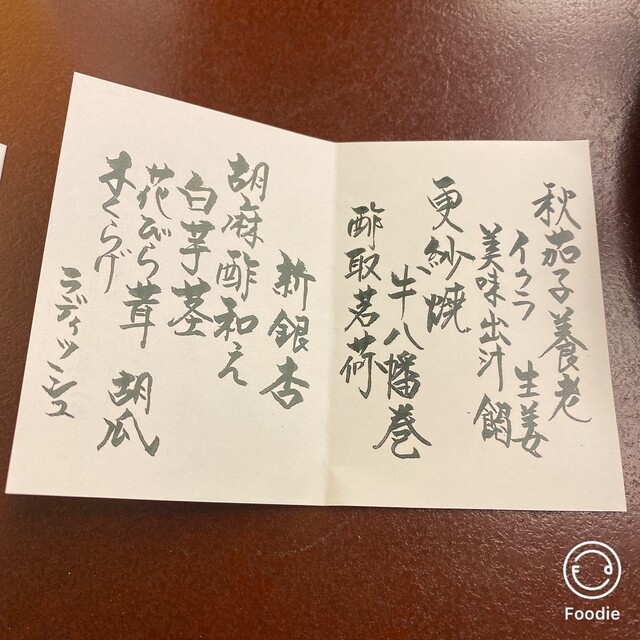 秋茄子養老
イクラ 生姜
美味出汁餡
更紗焼
牛八幡巻
酢取茗荷
新銀杏
胡麻酢和え
白芋茎
花びら茸 胡瓜
きくらげ
ラディッシュ
Foodie